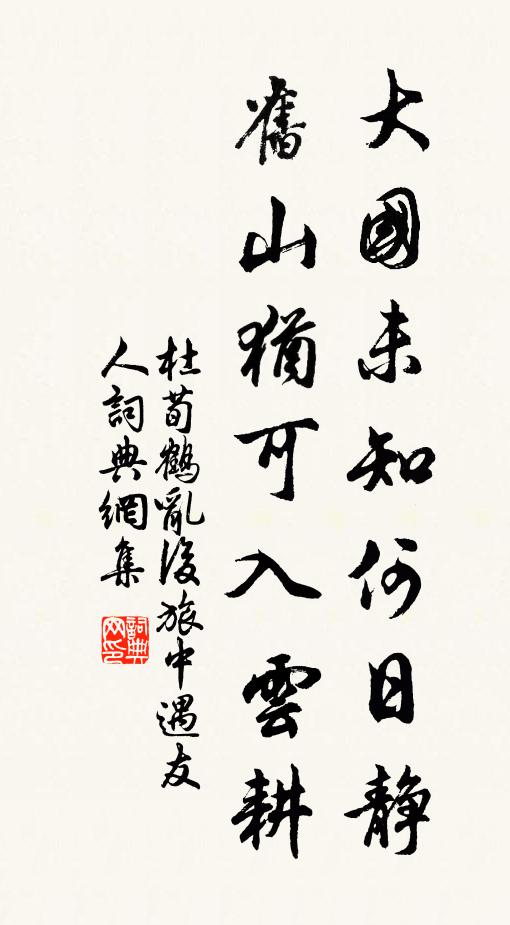 大國未知何日静
舊山猶可入雲耕
杜荀鶴亂後旅中遇友
人詞典網集
詞典
网印